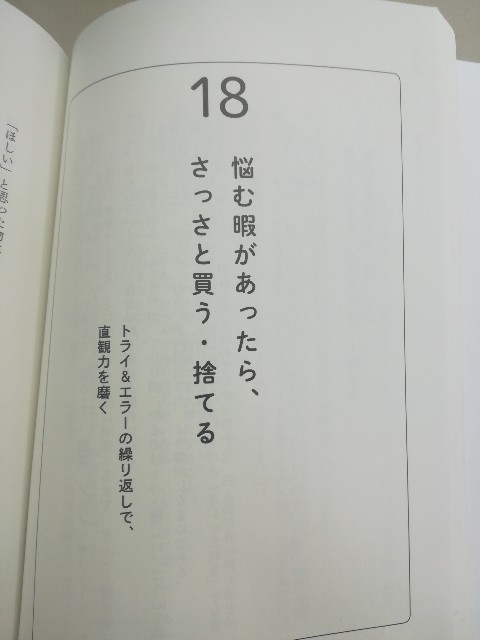 18
悩む暇があったら、
さっさと買う・捨てる
トライ&エラーの繰り返しで、
直観力を磨く
「ほしい」と思った